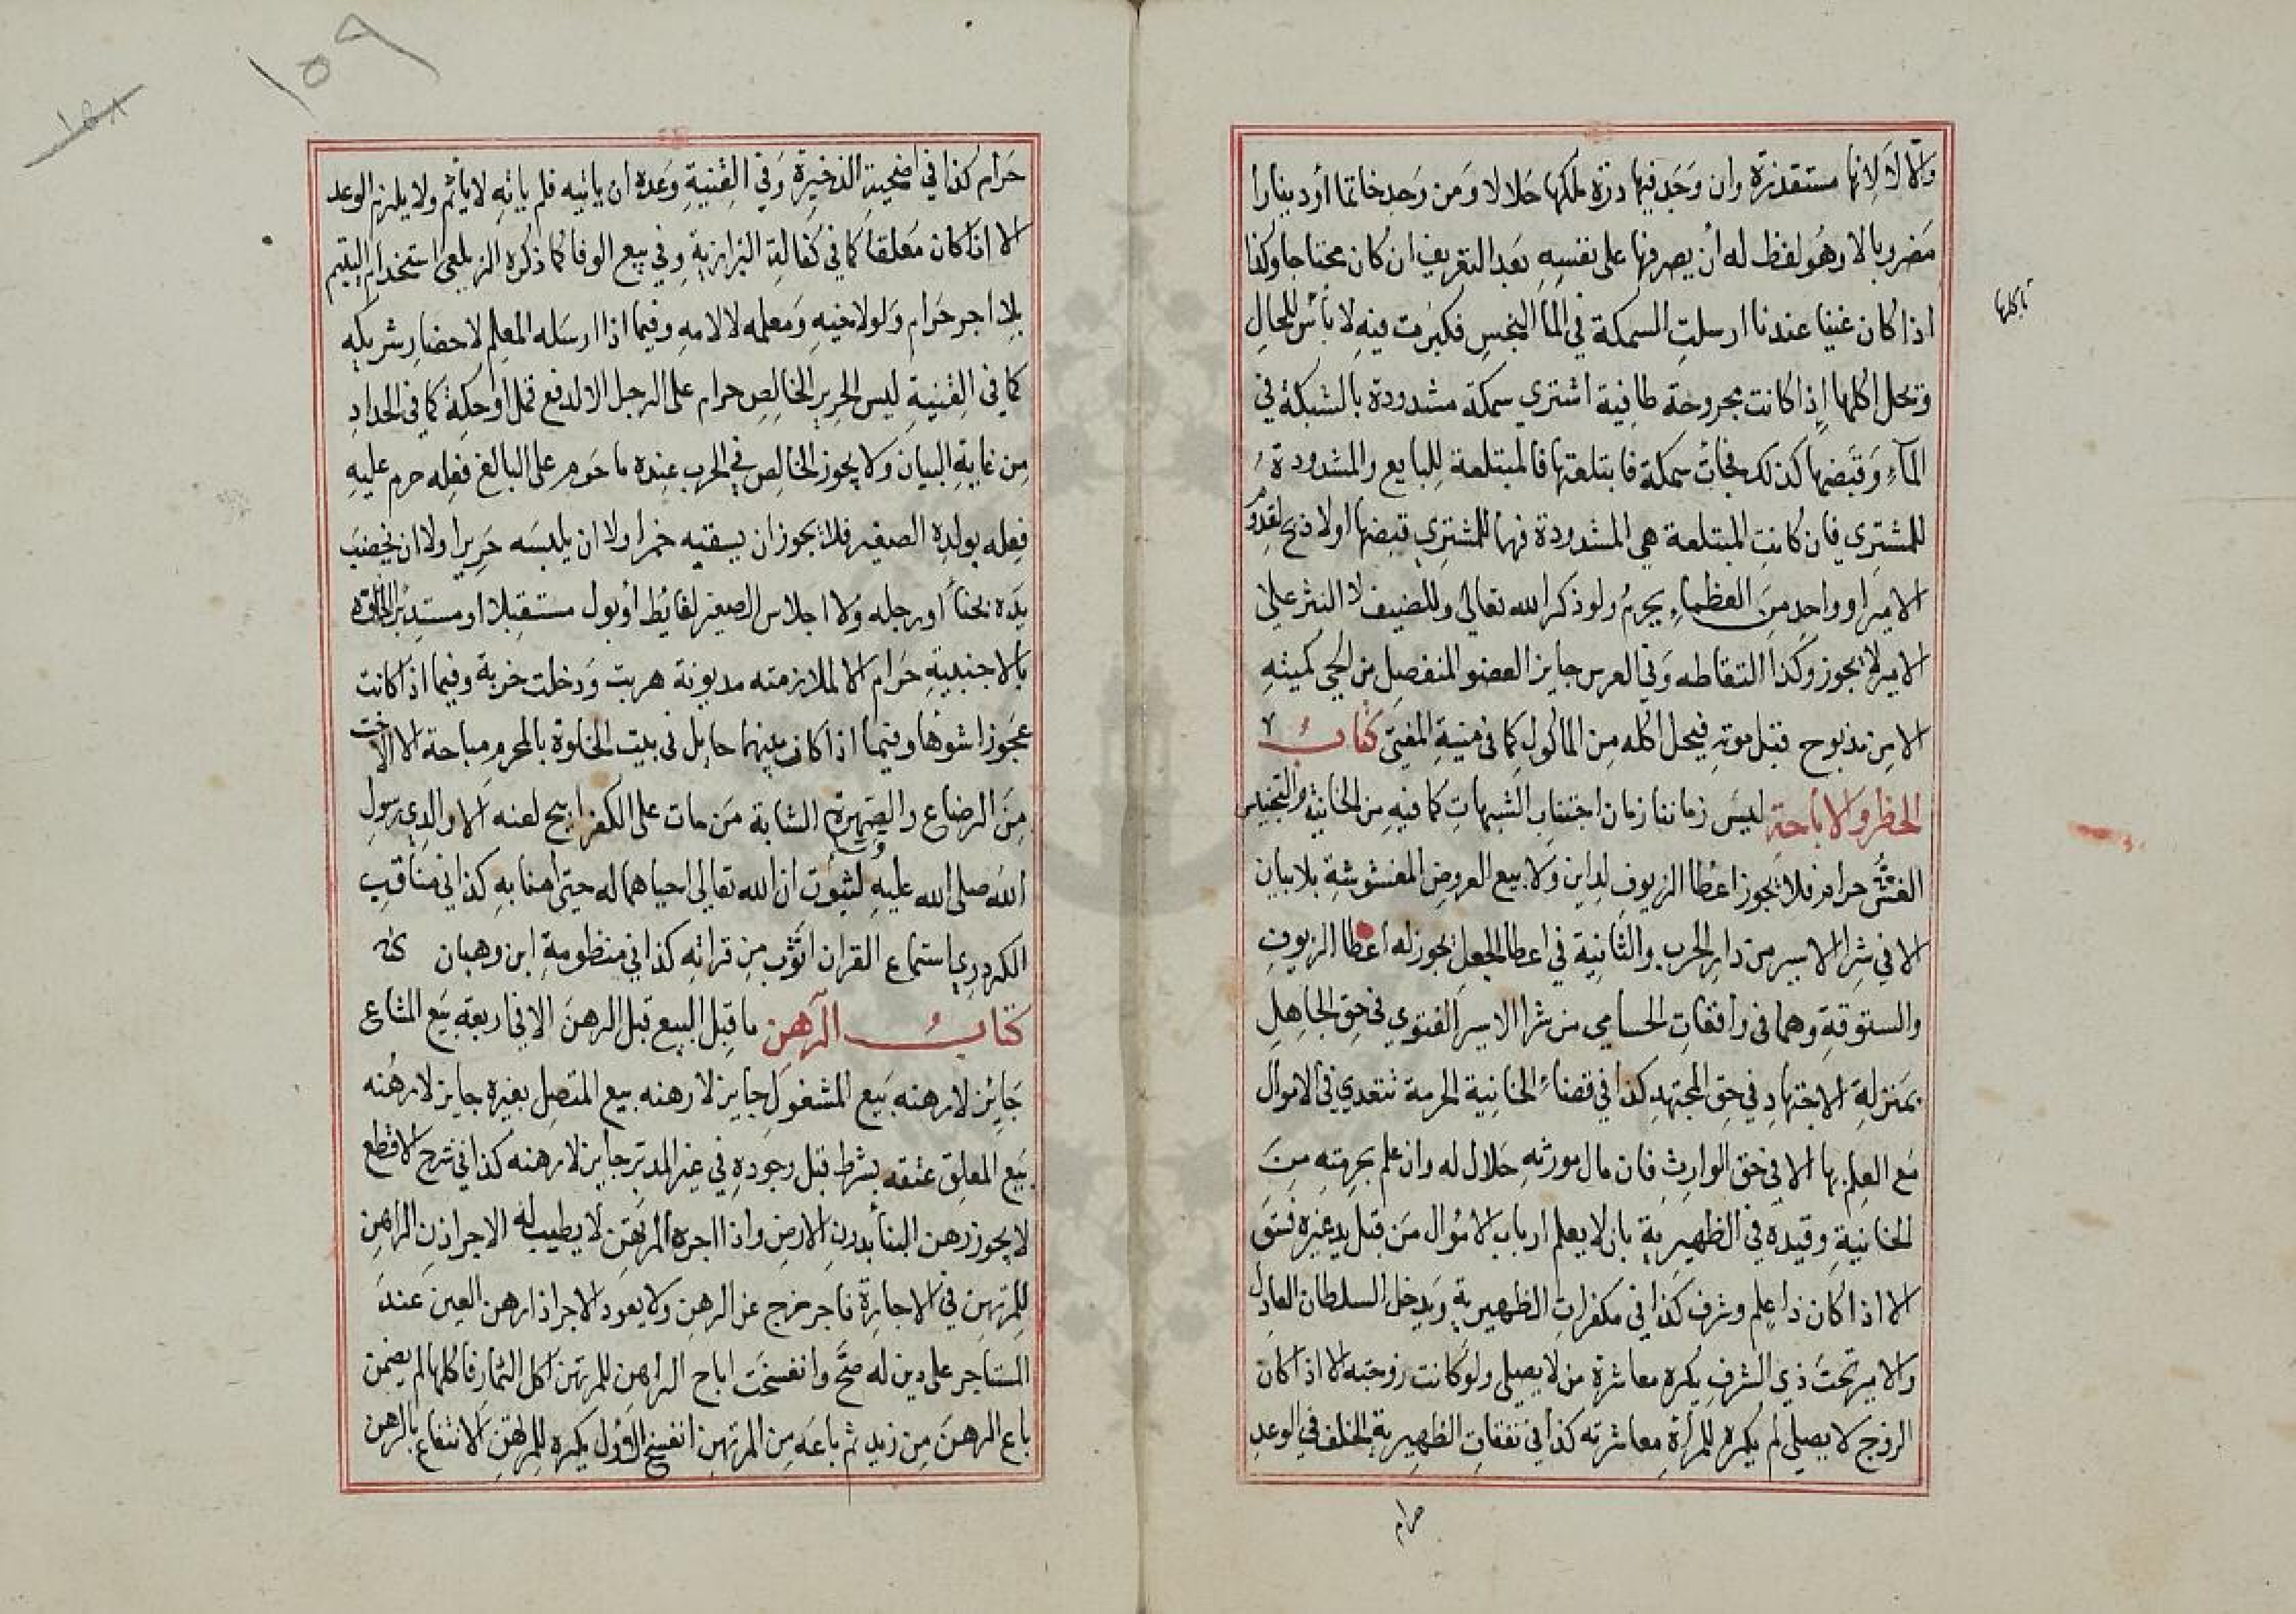 والا لا لانها مستقذرة وان وجد فيها درة ملكها حلالا ومن وجد خاتما أو دينارا
مضروبا لا وهو لفظ له أن يصرفها على نفسه بعد التعريف ان كان محتاجا وكذا
اذا كان غنيا عندنا ارسلت السمكة في الماء النجس فكبرت فيه لا بأس للحال
وتحل اكلها إذا كانت مجروحة طافية اشتري سمكة مشدودة بالشبكة في
الماء وقبضها كذلك فجات سمكة فابتلعتها فالمبتلعة للبايع والمشدودة
للمشتري فان كانت المبتلعة هي المشدودة فهما للمشتري قبضها اولا ذبح لقدوم
الامير او واحد من العظماء يحرم ولو ذكر الله تعالى وللضيف لا النثر على
الامير لا يجوز وكذا التقاطه وفي العرس جايز العضو المنفصل من الحي كميته
الا من مذبوح قبل موته فيحل اكله من المأكول كما في منية المفتي كتاب
الحظر والاباحة ليس زماننا زمان اجتناب الشبهات كما فيه من الخانية والتجنيس
الغش حرام فلا يجوز اعطا الزيوف لداين ولا بيع العروض المغشوشة بلا بيان
الا في شرا الاسير من دار الحرب والثانية في اعطا الجعل يجوز له اعطا الزيوف
والستوقة وهما في واقعات الحسامي من شرا الاسير الفتوي في حق الجاهل
بمنزلة الاجتهاد في حق المجتهد كذا في قضاء الخانية الحرمة تتعدي في الاموال
مع العلم بها الا في حق الوارث فان مال مورثه حلال له وان علم بحرمته من
الخانية وقيده في الظهيرية بان لا يعلم ارباب الاموال من قبل يد غيره فسق
الا اذا كان ذا علم وشرف كذا في مكفرات الظهيرية ويدخل السلطان العادل
والامير تحت ذي الشرف يكره معاشرة من لا يصلي ولو كانت زوجته الا اذا كان
الزوج لا يصلي لم يكره للمرأة معاشرته كذا في نفقات الظهيرية الخلف في الوعد
حرام
١٥٩
١٥٨
حرام كذا في اضحية الذخيرة وفي القنية وعده ان ياتيه فلم ياته لا ياثم ولا يلزم الوعد
الا اذا كان معلقا كما في كفالة البزازية وفي بيع الوفا كما ذكره الزيلعي استخدام اليتيم
بلا اجر حرام ولو لاخيه ومعلمه لا لامه وفيما اذا ارسله المعلم لاحضار شريكه
كما في القنية لبس الحرير الخالص حرام على الرجل الا لدفع قمل أو حكة كما في الحدادي
من غاية البيان ولا يجوز الخالص في الحرب عنده ما حرم على البالغ فعله حرم عليه
فعله بولده الصغير فلا يجوز ان يسقيه خمرا ولا ان يلبسه حريرا ولا ان يخضب
يده بحناء أو رجله ولا اجلاس الصغير لغايط أو بول مستقبلا او مستدبرا الخلوة
بالاجنبية حرام الا لملازمته مديونة هربت ودخلت خربة وفيما اذا كانت
عجوزا شوها وفيما اذا كان بينهما حايل في بيت الخلوة بالمحرم مباحة الا الاخت
من الرضاع والصهرة الشابة من مات على الكفر ابيح لعنه الا والدي رسول
الله صلى الله عليه لثبوت ان الله تعالى احياهما له حتى امنا به كذا في مناقب
الكردري استماع القران اثوب من قراته كذا في منظومة ابن وهبان
كتاب الرهن ما قبل البيع قبل الرهن الا في اربعة بيع المشاع
جائز لا رهنه بيع المشغول جايز لا رهنه بيع المتصل بغيره جايز لا رهنه
بيع المعلق عتقه بشرط قبل وجوده في غير المدبر جايز لا رهنه كذا في شرح الاقطع
لا يجوز رهن البناء بدون الارض واذا اجره المرتهن لا يطيب له الاجر اذن الراهن
للمرتهن في الاجارة فاجر خرج عن الرهن ولا يعود الاجر اذا رهن العين عند
المستاجر على دين له صح وانفسخت اباح الراهن للمرتهن اكل الثمار فاكلها لم يضمن
باع الرهن من زيد ثم باعه من المرتهن انفسخ الاول يكره للمرتهن الانتفاع بالرهن